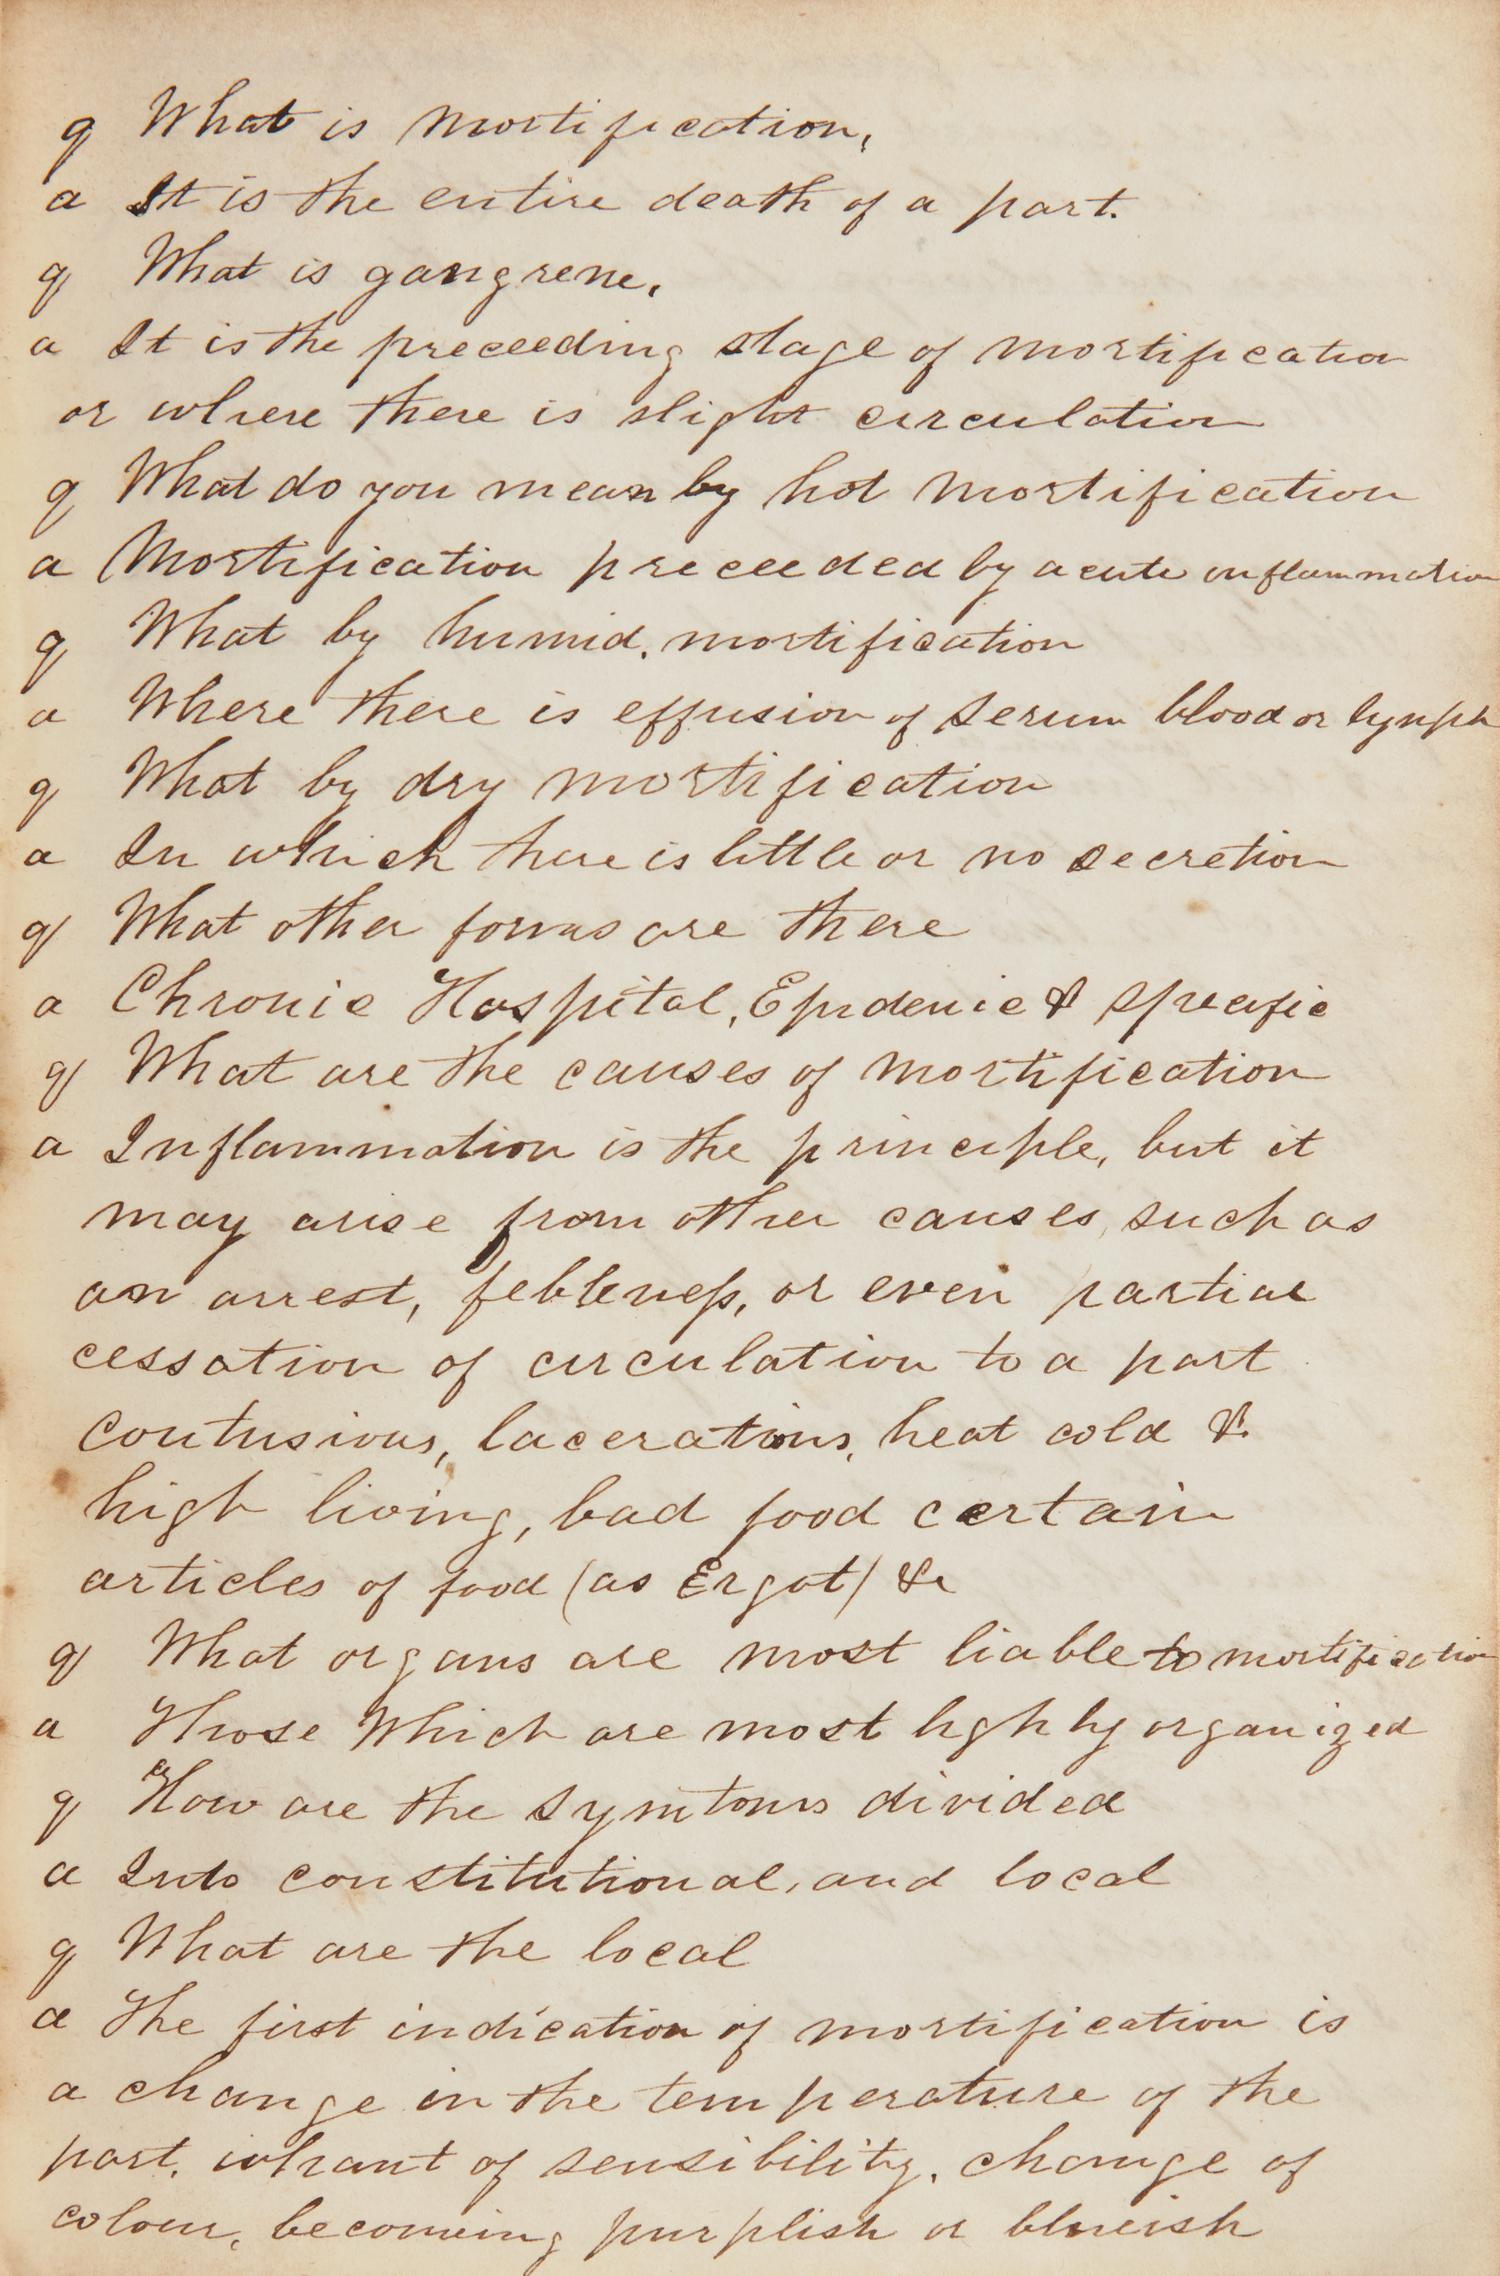 q What is mortification,
a It is the entire death of a part.
q What is gangrene,
a It is the preceeding stage of mortification
or where there is slight circulation
q What do you mean by hot mortification
a Mortification preceeded by acute inflammation
q What by humid, mortification
a Where there is effusion of serum blood or lymph
q What by dry mortification
a In which there is little or no secretion
q What other forms are there
a Chronic Hospital, Epidemic & specific
q What are the causes of mortification
a Inflammation is the principle, but it
may arise from other causes, such as
an arrest, febleness, or even partial
cessation of circulation to a part
contusions, lacerations, heat cold &.
high living, bad food certain
articles of food (as Ergot) &c
q What organs are most liable to mortification
a Those which are most highly organized
q How are the symtoms divided
a Into constitutional, and local
q What are the local
a The first indication of mortification is
a change in the temperature of the
part, whant of sensibility, change of
colour, becomeing purplish or blueish